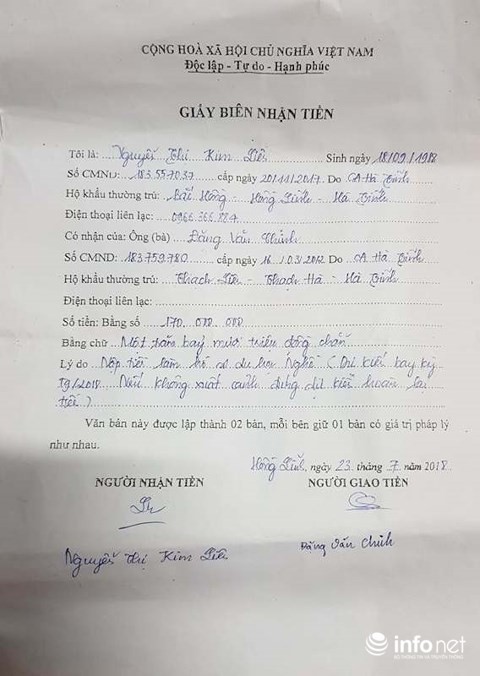 CỘNG HOÀ XÃ HỘI CHỦ NGHĨA VIỆT NAM
Độc lập - Tự do - Hạnh phúc
GIẤY BIÊN NHẬN TIỀN
Tôi là: Nguyễn Thị Kim Liên Sinh ngày
Số CMND: 183.557037 cấp ngày 20/11/2017. Do CA Hà Tĩnh
Hộ khẩu thường trú: Bắc Hồng - Hồng Lĩnh - Hà Tĩnh
Điện thoại liên lạc: 0966.366.884
Có nhận của: Ông (bà) Đặng Văn
Số CMND: 183759780 cấp ngày 16/03/2012 Do CA Hà Tĩnh
Hộ khẩu thường trú: Thạch Liên - Thạch Hà - Hà Tĩnh
Điện thoại liên lạc:
Số tiền: Bằng số 170.000.000
Bằng chữ Một trăm bảy mươi triệu đồng chẵn
Lý do Nộp tiền làm hồ sơ du học Nghề (Dự kiến bay kỳ
T9/2018 Nếu không xuất cảnh đúng dự kiến hoàn lại
tiền)
Văn bản này được lập thành 02 bản, mỗi bên giữ 01 bản có giá trị pháp lý
như nhau.
Hồng Lĩnh, ngày 23 tháng 7 năm 2018.
NGƯỜI NHẬN TIỀN NGƯỜI GIAO TIỀN
Nguyễn Thị Kim Liên Đặng Văn
infonet